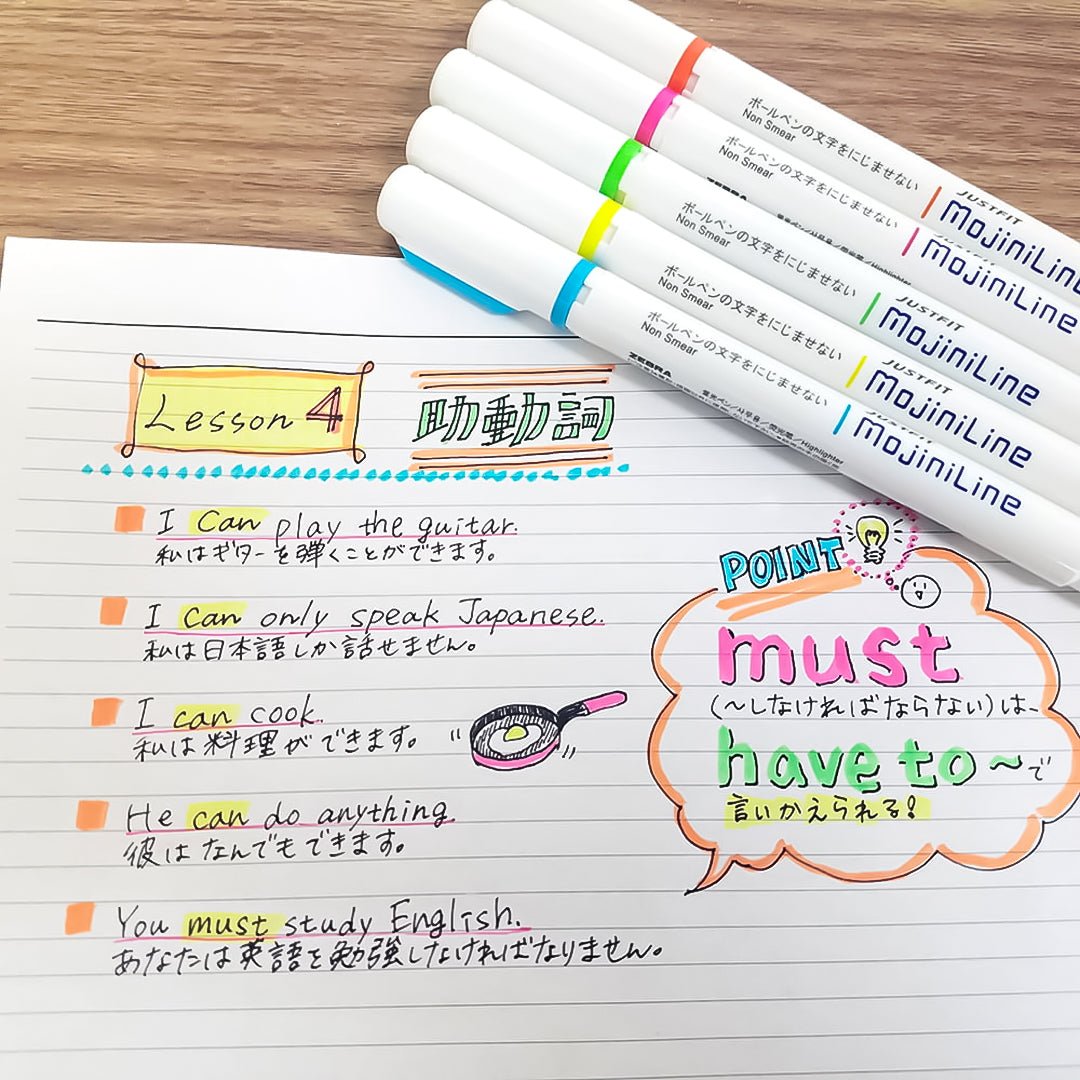 ボールペンの文字をにじませない
Non Smear
JUSTFIT
mojiniLine
ボールペンの文字をにじませない
Non Smear
JUSTFIT
mojiniLine
ボールペンの文字をにじませない
Non Smear
JUSTFIT
mojiniLine
ボールペンの文字をにじませない
Non Smear
JUSTFIT
mojiniLine
ボールペンの文字をにじませない
Non Smear
JUSTFIT
mojiniLine
ZEBRA
蛍光ペン/사무용/荧光笔/Highlighter
Lesson 4
助動詞
I can play the guitar.
私はギターを弾くことができます。
I can only speak Japanese.
私は日本語しか話せません。
I can cook.
私は料理ができます。
He can do anything.
彼はなんでもできます。
You must study English.
あなたは英語を勉強しなければなりません。
POINT
must
(～しなければならない)は、
have to ～で
言いかえられる!